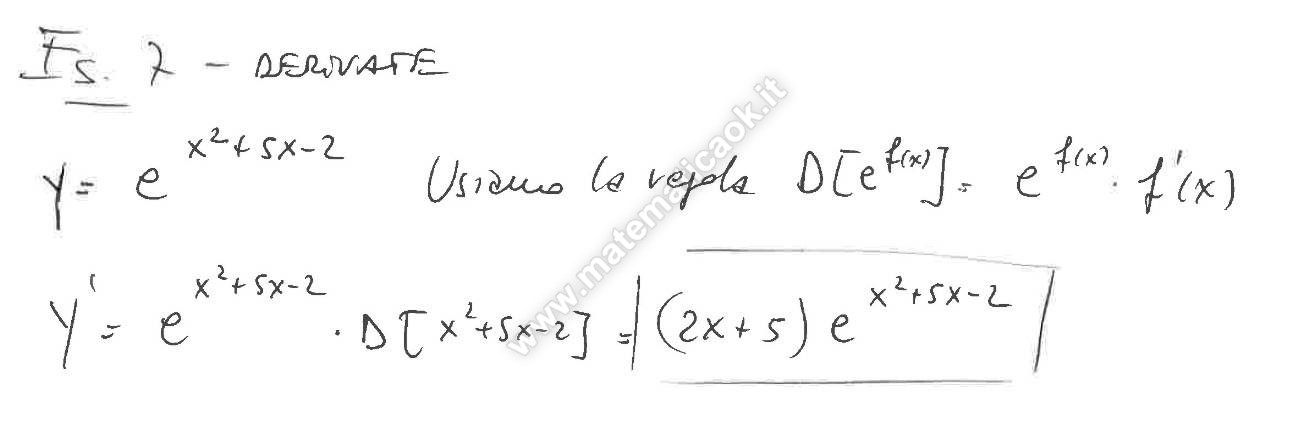 Es. 7 - DERIVATE
y = e^{x²+5x-2} Usiamo la regola D[e^{f(x)}] = e^{f(x)} · f'(x)
y' = e^{x²+5x-2} · D[x²+5x-2] = (2x+5) e^{x²+5x-2}
www.matematicaok.it